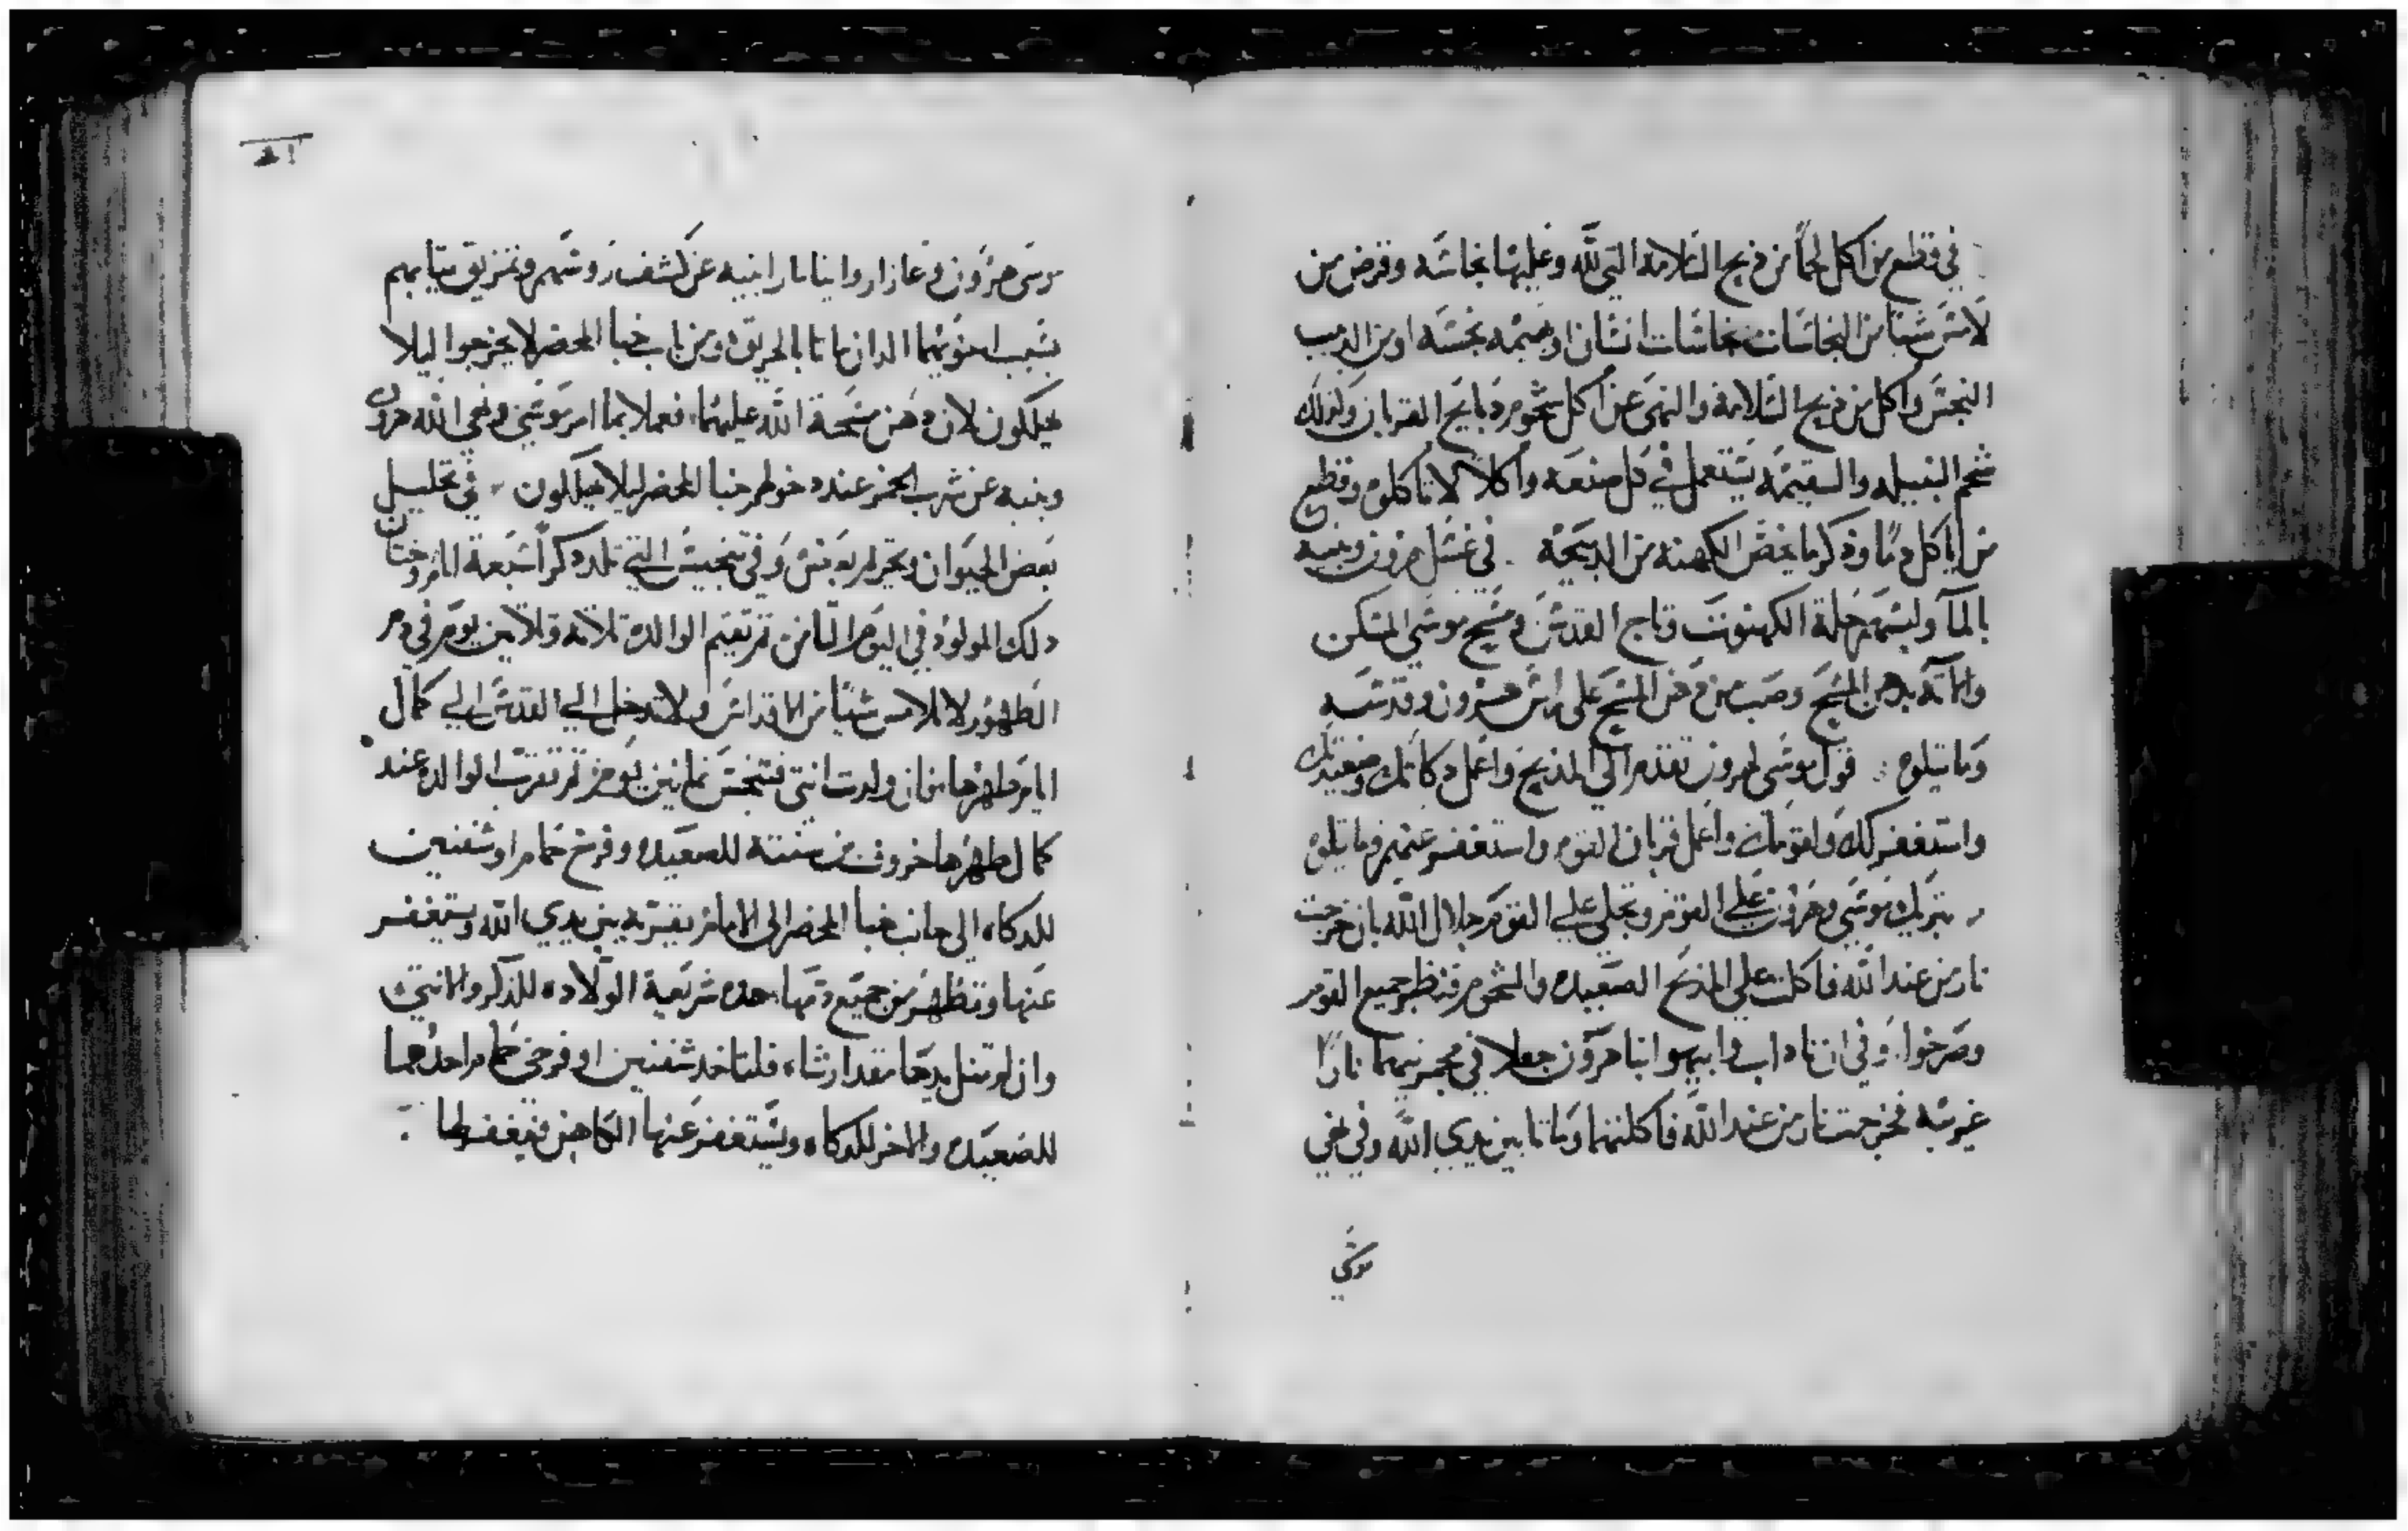 في قطع من اكل لحمًا من ذبيح السلامه التي لله وعليها نجاسه وفرض من
لامس شيًا من النجاسات نجاسات انسان او بهيمه نجسه او من الدبيب
النجس واكل من ذبيح السلامه والنهي عن اكل شحوم دبايح القربان ولذلك
شحم النبيله والسقيمه يستعمل في كل صنعه واكلا لا تاكلوه وقطع
من ياكل دمًا وذكر ما يخص الكهنه من الدبيحه . في غسل هرون وبنيه
بالمآ ولبسهم حلة الكهنوت وتاج القدس ومسح موسى المسكن
والاته بدهن المسح وصب من دهن المسح على راس هرون وقدسه
وما يتلوه قول موسى لهرون تقدم الي المذبح واعمل دكاتك وصعيدتك
واستغفر لك ولقومك واعمل قربان القوم واستغفر عنهم وما يتلوه
تبريك موسى وهرون علي القوم وتجلي علي القوم جلال الله بان خرجت
نار من عند الله فاكلت علي المذبح الصعيده والشحوم فنظر جميع القوم
وصرخوا وفي ان ناداب وابيهو ابنا هرون جعلا في مجمرتيهما نارًا
غريبه فخرجت نار من عند الله فاكلتهما وماتا بين يدي الله وفي نهي
موسي
موسى هرون وعازار وايتامار ابنيه عن كشف روسهم وتمزيق تيابهم
بسبب اخوتهما الدان ماتا بالحريق ومن باب خبا المحضر لا يخرجوا ليلا
يهلكون لان دهن مسحة الله عليهما فعملا بما امر موسي ونهي الله هرون
وبنيه عن شرب الخمر عند دخولهم خبا المحضر ليلا يهلكون في تحليل
بعض الحيوان وتحريم بعض وفي تنجيس التي تلد ذكرًا سبعة ايام وختان
دلك المولود في اليوم التامن تم تقيم الوالده تلاته وتلاتين يوم في دم
الطهور لا تلامس شيًا من الاقداس ولا تدخل الي القدس الي كمال
ايام طهرها فان ولدت انتى فتنجس تمانين يوم تم تقرب الوالده عند
كمال طهرها خروف من سنته للصعيده وفرخ حمام او شفنين
للدكاه الي جانب خبا المحضر الي الامام يقربه بين يدي الله ويستغفر
عنها وتطهر من جميع دمها هده شريعة الولاده للذكر والانتي
وان لم تنل يدها مقدار شاه فلتاخد شفنين او فرخي حمام احدهما
للصعيده والاخر للدكاه ويستغفر عنها الكاهن فيغفر لها